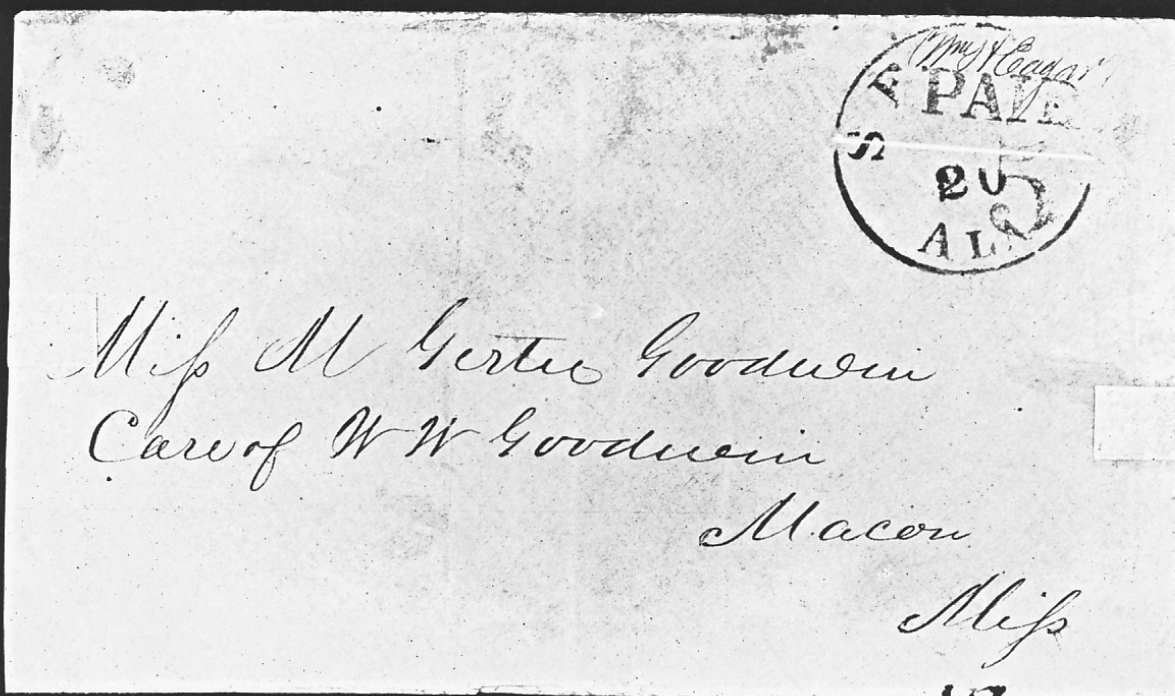 PAID
S
20
5
ALA
Miss M Gertie Goodwin
Care of W W Goodwin
Macon
Miss